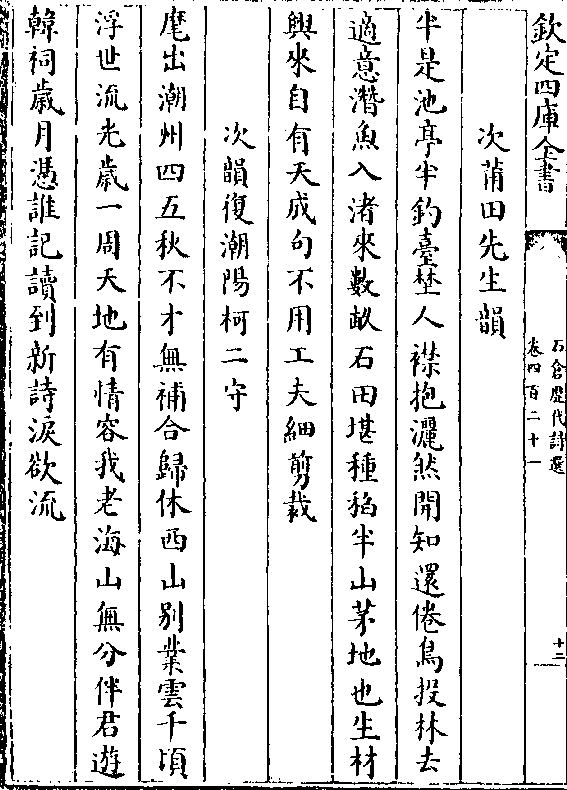 欽定四庫全書
石倉歷代詩選
卷四百二十一
十二
次莆田先生韻
半是池亭半釣臺埜人襟抱灑然開知還倦鳥投林去
適意潛魚入渚來數畝石田堪種稻半山茅地也生材
興來自有天成句不用工夫細剪裁
次韻復潮陽柯二守
麾出潮州四五秋不才無補合歸休西山别業雲千頃
浮世流光歲一周天地有情容我老海山無分伴君遊
韓祠歲月憑誰記讀到新詩淚欲流